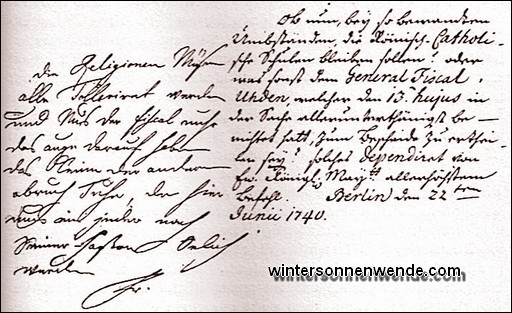 die Religionen Müsen
alle Tolleriret werden
und Mus der Fiscal nuhr
das auge darauf haben
das keine der andern
abruch Tuhe, den hier
mus ein jeder nach
Seiner Fasson Selich
werden
Fr.
Ob nun, bey so bewandten
Umbständen, die Römisch-Catholi-
sche Schulen bleiben sollen? oder
was sonst dem General Fiscal
Uhden, welcher den hujus in
der Sache allerunterthänigst be-
richtet hatt, zum Bescheide zu erthei-
len sey? solches dependiret von
Ew. Königl: Mayt: allerhöchstem
Befehl. Berlin den 22ten
Junii 1740.
wintersonnenwende.com